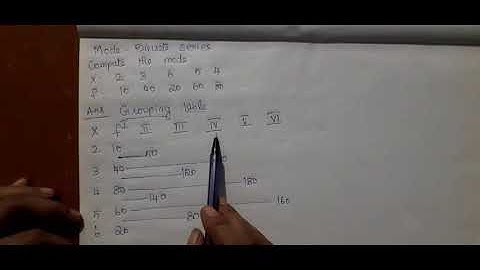 Mode - Discrete series
Compute the mode
X 2 3 6 5 4
f 10 40 20 60 80
Ans Grouping table
X f I II III IV V VI
2 10 50
3 40 120
4 80 140 180
5 60 80 160
6 20